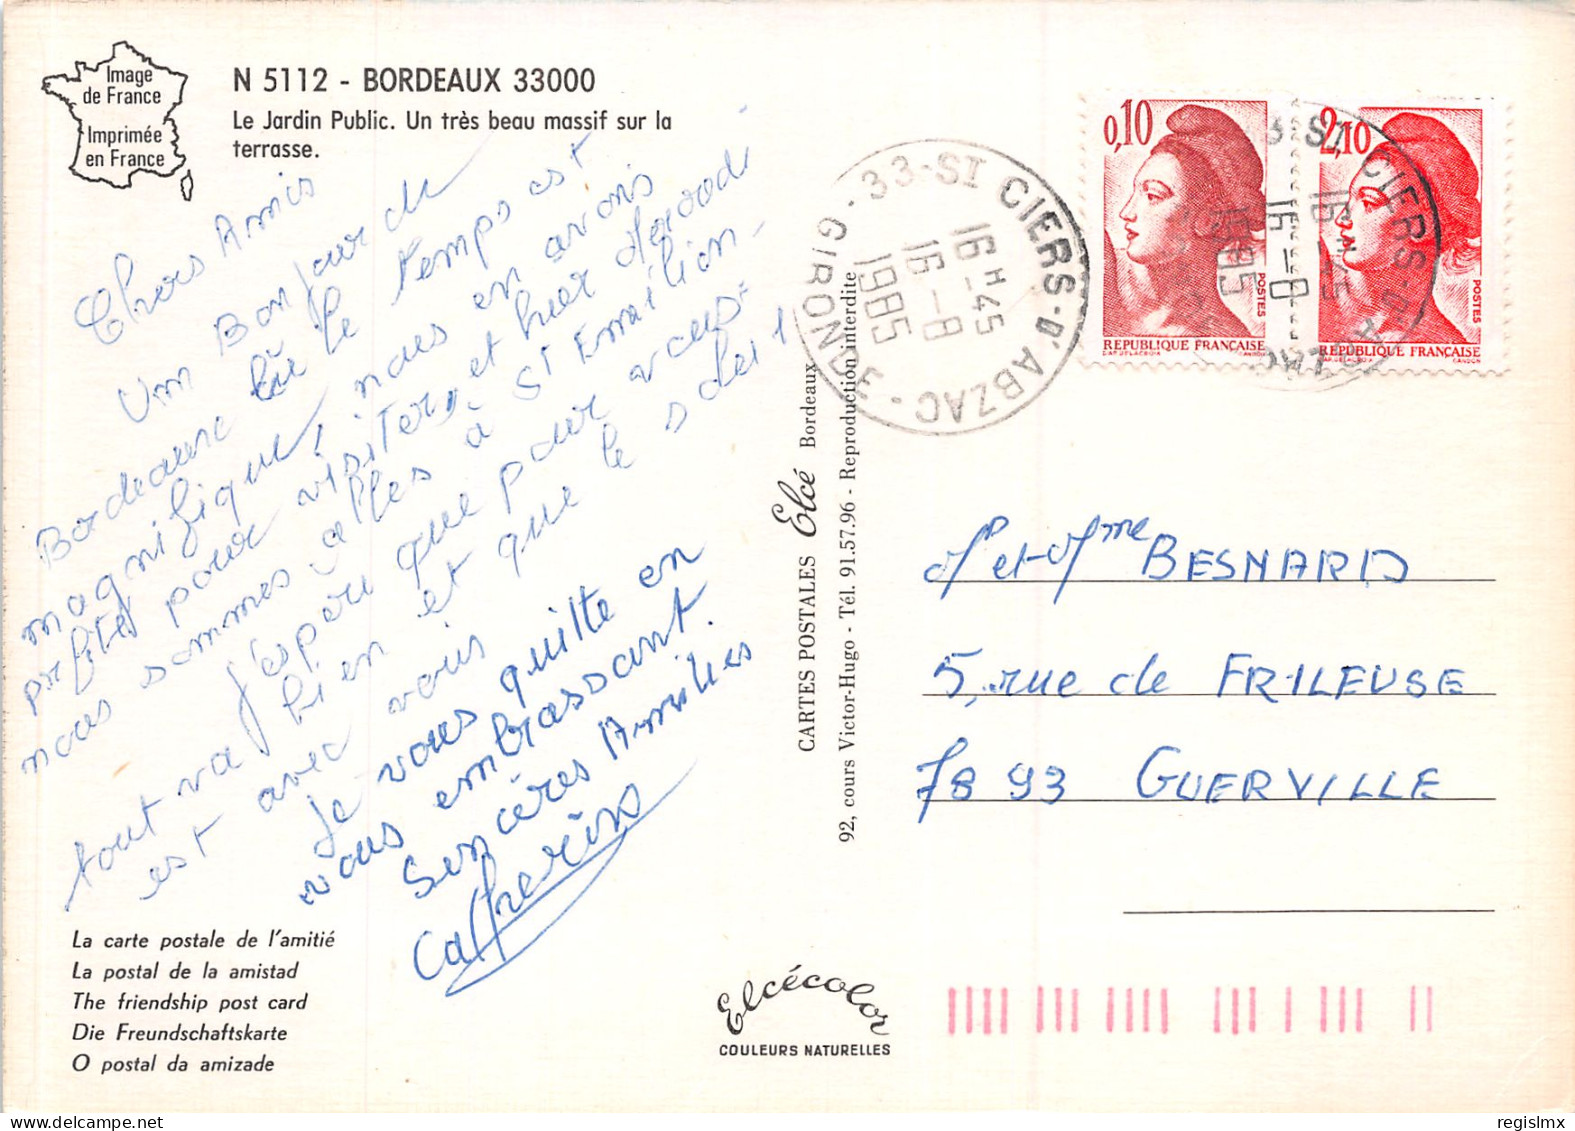 Image
de France
Imprimée
en France
N 5112 - BORDEAUX 33000
Le Jardin Public. Un très beau massif sur la
terrasse.
Chers Amis
Un Bonjour de
Bordeaux le temps est
magnifique, nous en avons
pour visiter, et hier
nous sommes allés à St Emilion -
tout va j'espère que pour vous
bien et que le soleil
est avec vous
Je vous quitte en
vous embrassant.
Sincéres Amitiés
La carte postale de l'amitié
La postal de la amistad
The friendship post card
Die Freundschaftskarte
O postal da amizade
CARTES POSTALES Elcé Bordeaux
92, cours Victor-Hugo - Tél. 91.57.96 - Reproduction interdite
Elcécolor
COULEURS NATURELLES
33-ST CIERS-D'ABZAC - GIRONDE -
16H-45
16-8
1985
0,10
POSTES
REPUBLIQUE FRANÇAISE
2,10
POSTES
REPUBLIQUE FRANÇAISE
16H-45
16-8
1985
Mr et Mme BESNARD
5, rue de FRILEUSE
78 93 GUERVILLE
regislmx